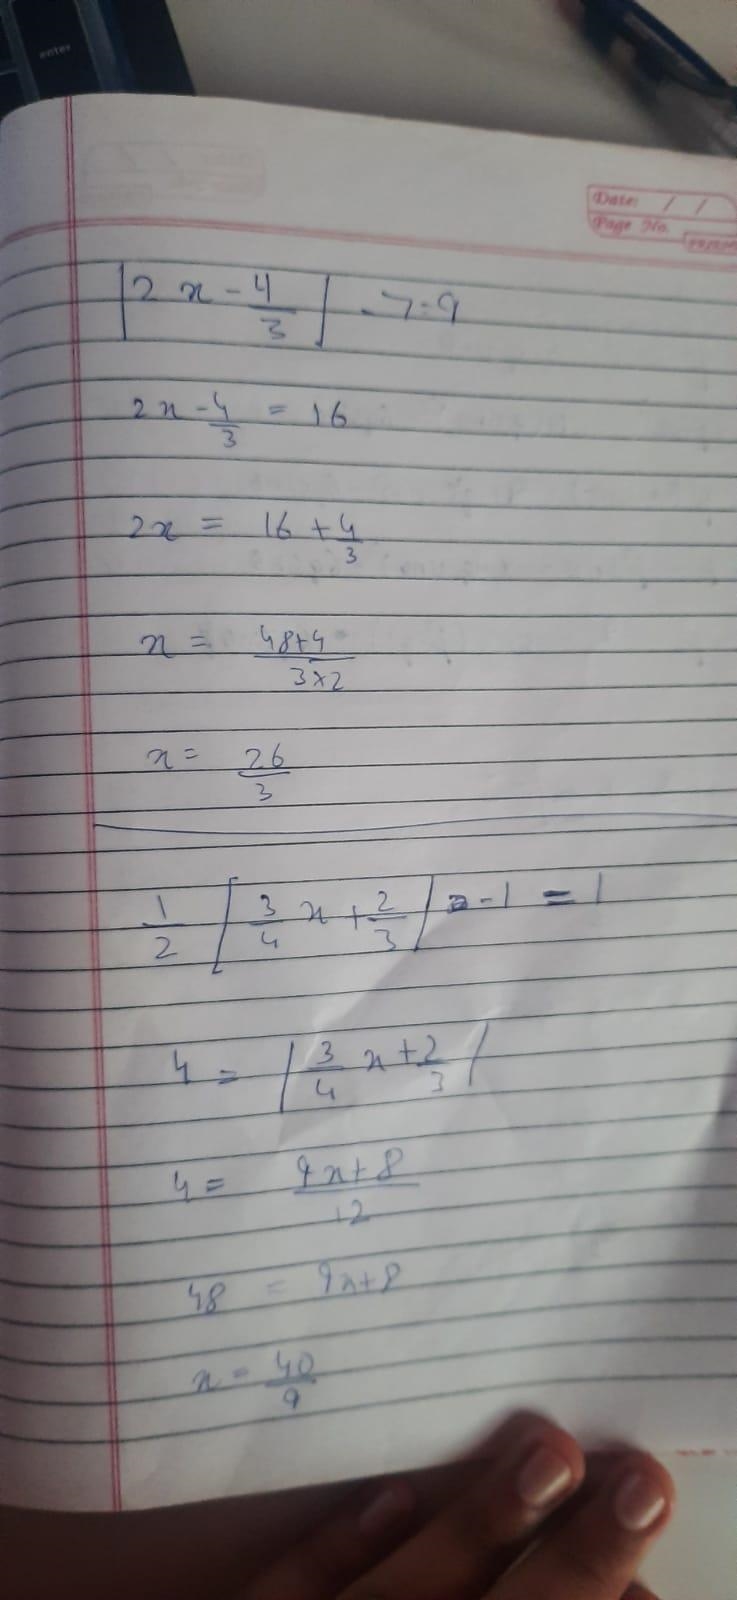 enter
Date: / /
Page No.
|2x - 4/3| - 7 = 9
2x - 4/3 = 16
2x = 16 + 4/3
x = 48+4/3×2
x = 26/3
1/2 | 3/4 x + 2/3 | - 1 = 1
4 = | 3/4 x + 2/3 |
4 = 9x+8/12
48 = 9x+8
x = 40/9